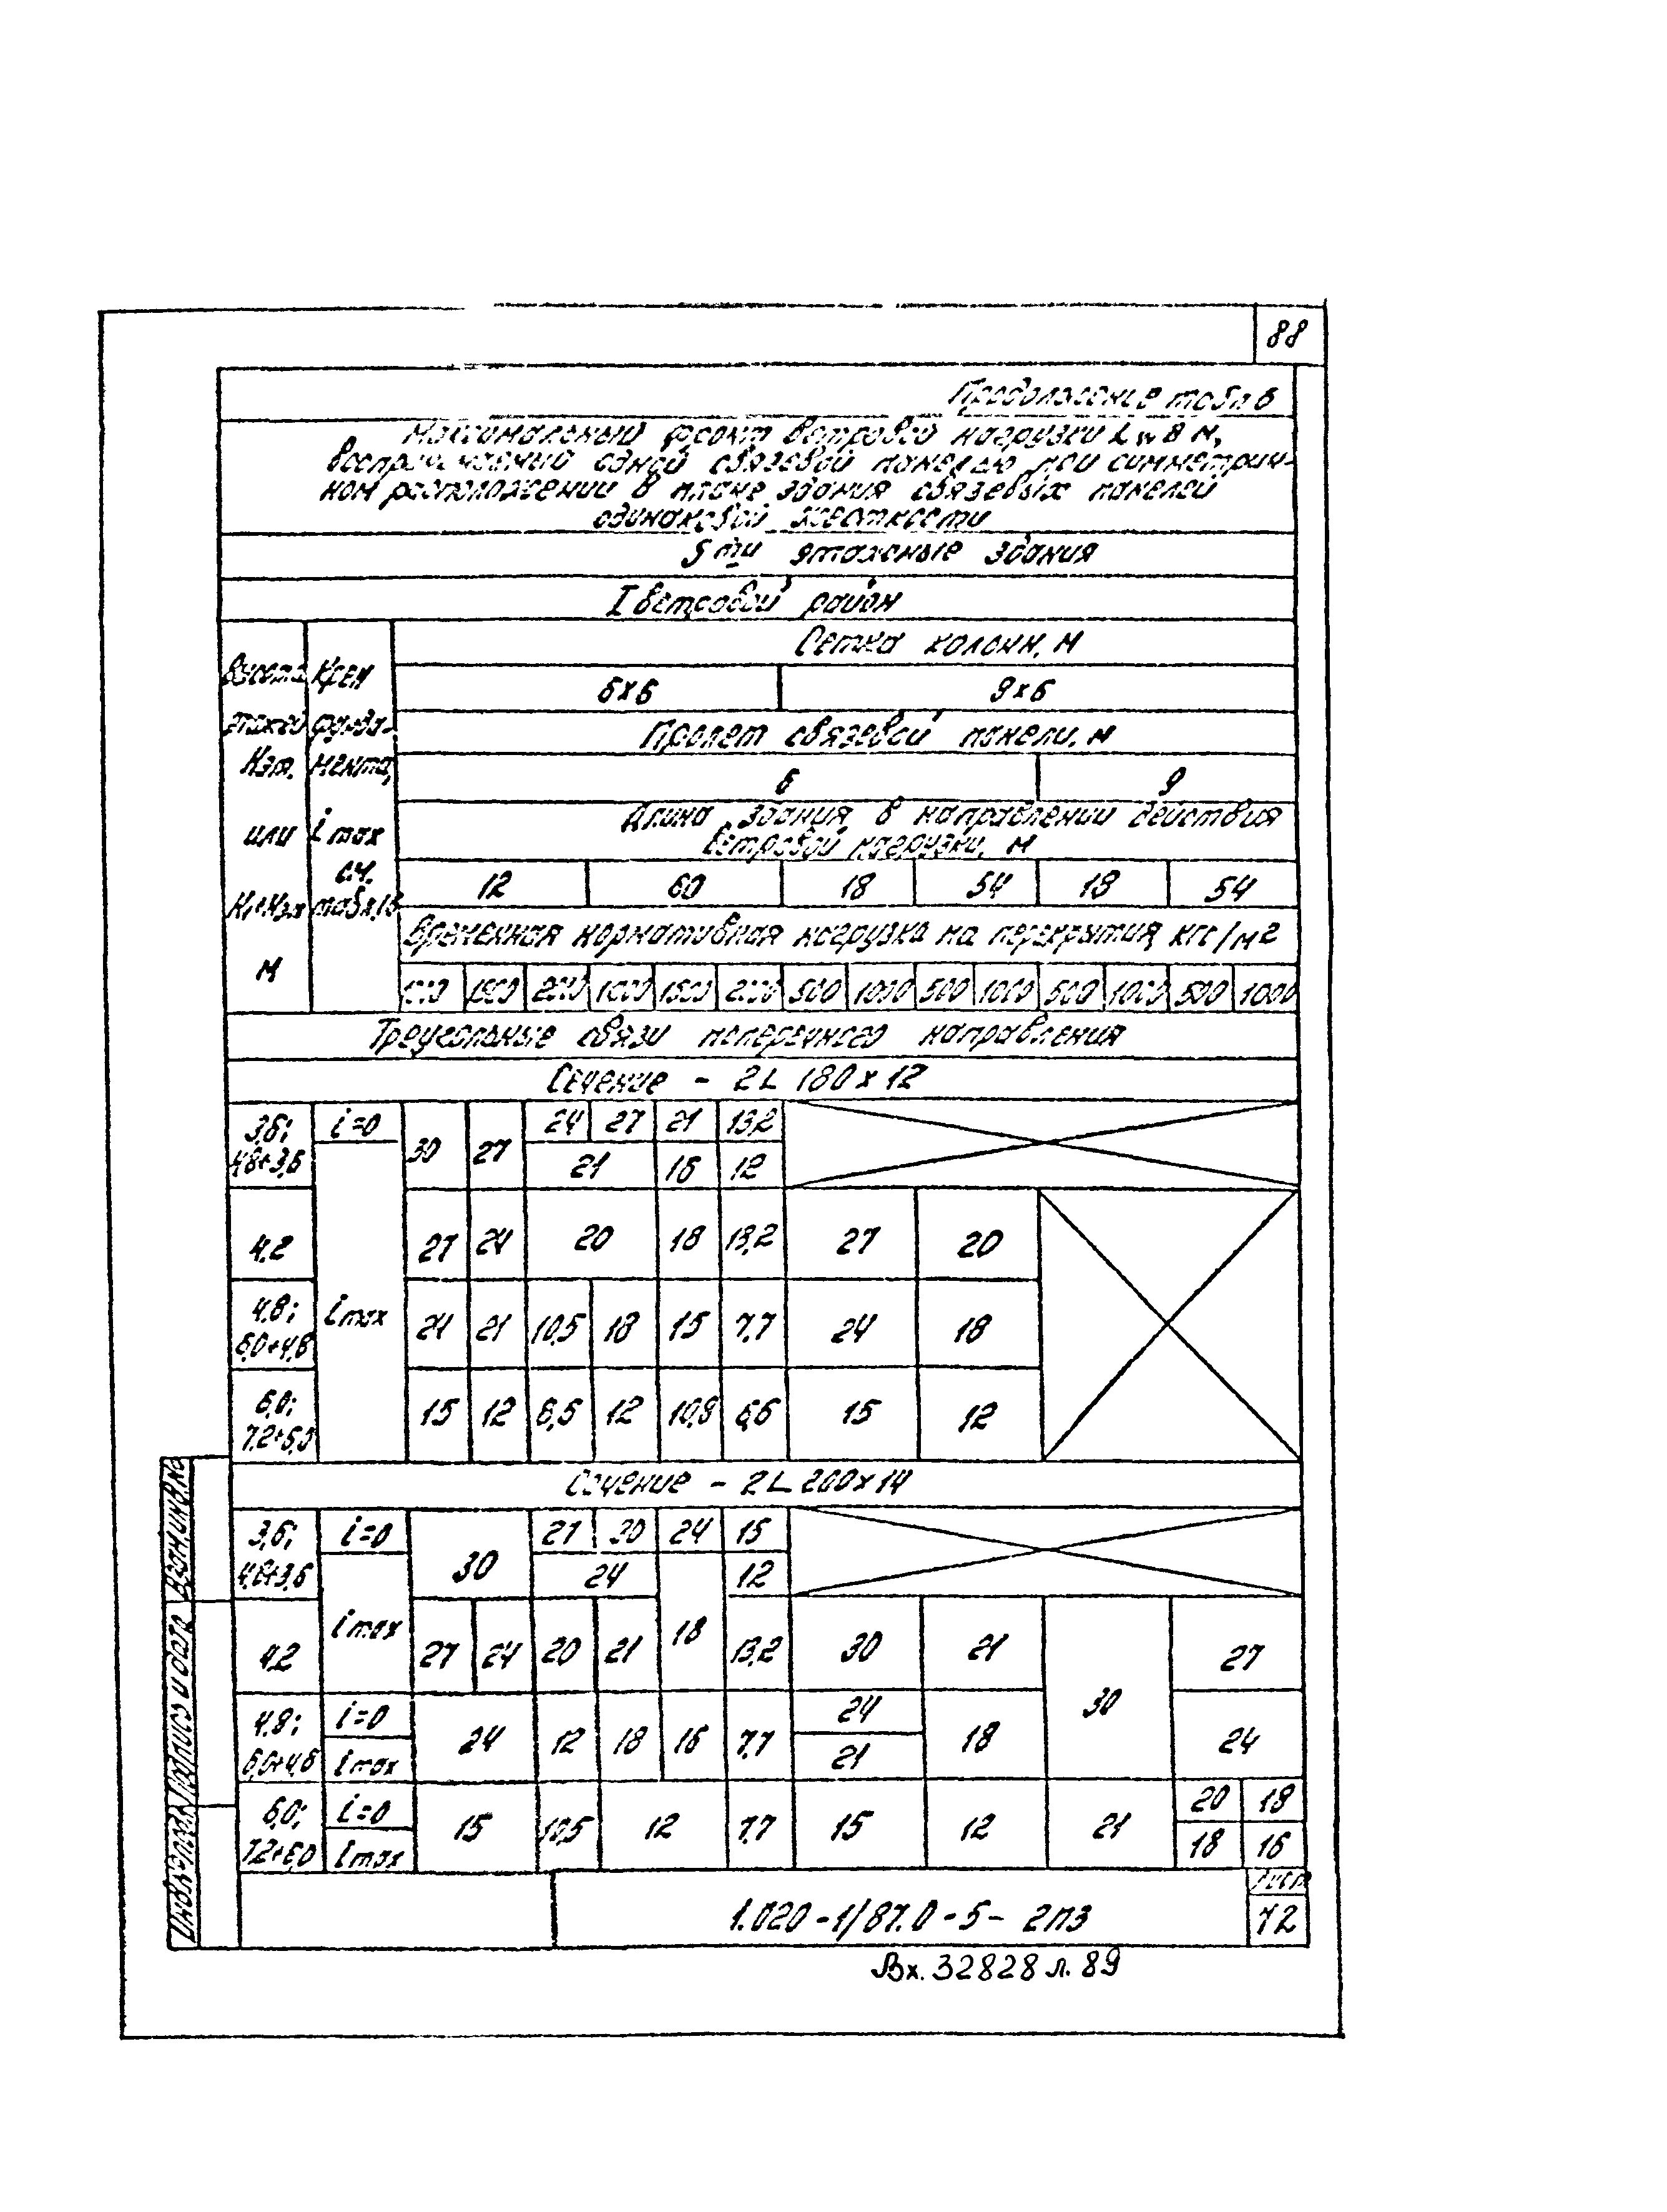 88
Продолжение табл 6
Максимальный фронт ветровой нагрузки Lw в м,
воспринимаемый одной связевой панелью при симметрич-
ном расположении в плане здания связевых панелей
одинаковой жесткости
5ти этажные здания
I ветровой район
Высота этажей Нэт. или Н1+Нэт м
Крен фундамента, imax см. табл.16
Сетка колонн, м
6х6 9х6
Пролет связевой панели, м
6 9
Длина здания в направлении действия
ветровой нагрузки, м
12 60 18 54 18 54
Временная нормативная нагрузка на перекрытия, кгс/м2
1000 1500 2000 1000 1500 2000 500 1000 500 1000 500 1000 500 1000
Треугольные связи поперечного направления
Сечение - 2L 180х12
3,6; i=0 24 27 21 13,2
4,8+3,6 30 27 21 16 12
4,2 27 24 20 18 13,2 27 20
4,8; imax 24 21 10,5 18 15 7,7 24 18
6,0+4,8
6,0; 15 12 6,6 12 10,8 6,6 15 12
7,2+6,0
Сечение - 2L 200х14
3,6; i=0 30 27 30 24 15
4,8+3,6 24 12
4,2 imax 27 24 20 21 18 13,2 30 21 30 27
4,8; i=0 24 12 18 16 7,7 24 18 24
6,0+4,8 imax 21
6,0; i=0 15 10,5 12 7,7 15 12 21 20 18
7,2+6,0 imax 18 16
Взам.инв.№
Подпись и дата
Инв.№ подл.
1.020-1/87.0-5- 2ПЗ
Лист
72
Вх. 32828 л. 89